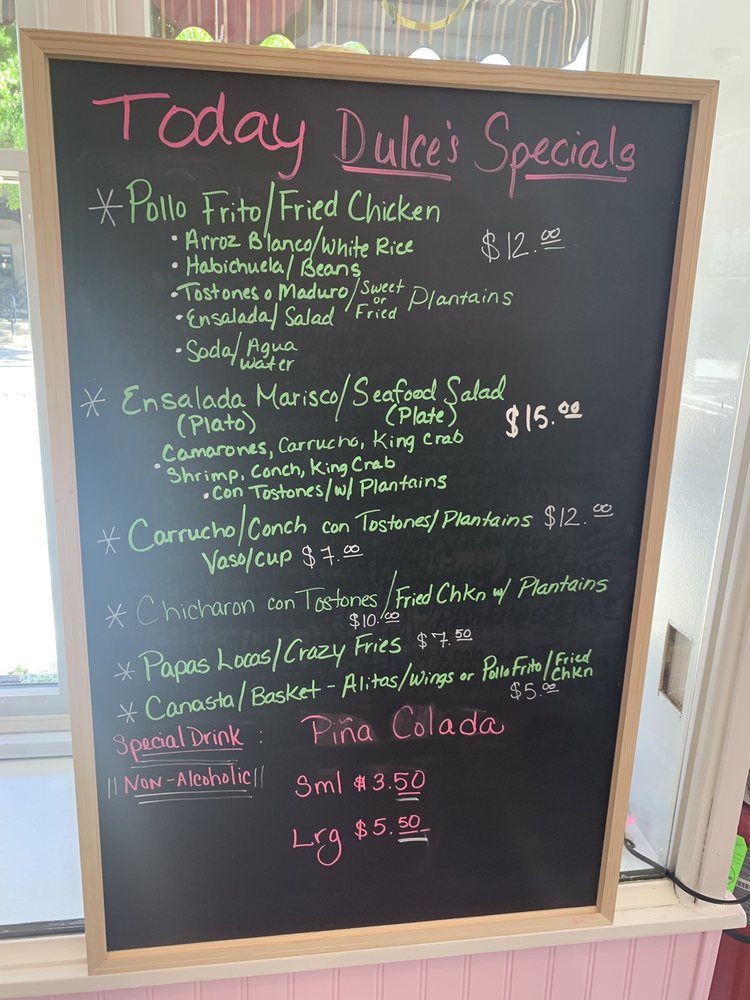 Today Dulce's Specials
* Pollo Frito/Fried Chicken
• Arroz Blanco/White Rice $12.00
• Habichuela/Beans
• Tostones o Maduro/Sweet or Fried Plantains
• Ensalada/Salad
• Soda/Agua
Water
* Ensalada Marisco/Seafood Salad
(Plato) (Plate) $15.00
Camarones, Carrucho, King Crab
• Shrimp, Conch, King Crab
• Con Tostones/w/ Plantains
* Carrucho/Conch con Tostones/Plantains $12.00
Vaso/cup $7.00
* Chicharon con Tostones/Fried Chkn w/ Plantains
$10.00
* Papas Locas/Crazy Fries $7.50
* Canasta/Basket - Alitas/Wings or Pollo Frito/Fried Chkn
$5.00
Special Drink : Piña Colada
||Non-Alcoholic||
Sml $3.50
Lrg $5.50